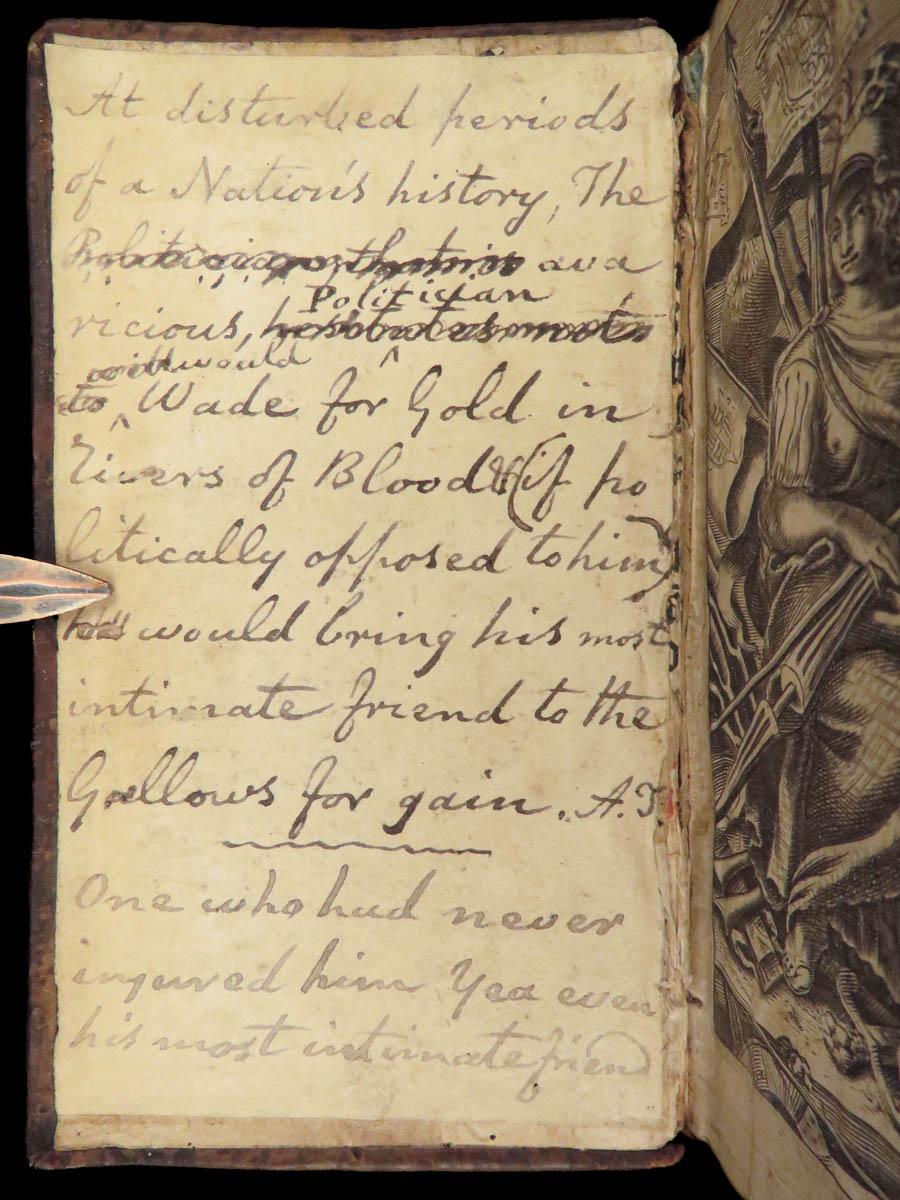 At disturbed periods
of a Nation's history, The
ava
Politician
ricious,
would
Wade for Gold in
Rivers of Blood & (if po
litically opposed to him)
would bring his most
intimate friend to the
Gallows for gain. A.T.
One who had never
injured him Yea even
his most intimate friend